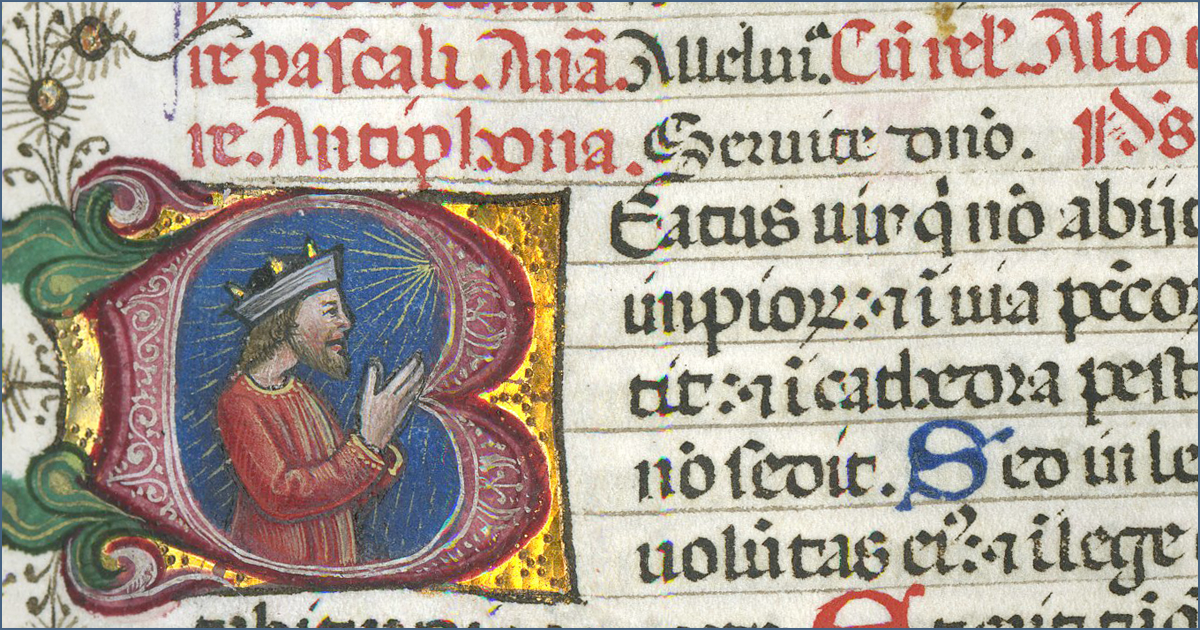 re pascali. Añā. Alleluiᵃ. Cū rel̄. Alio
re. Antiphona. Seruite dño. p̄s
Eatus uir q̇ nō abijt
impioꝝ: ⁊ ī uia pc̄co
tit: ⁊ i cathedra pest
nō sedit. Sed in le
volūtas eiꝰ: ⁊ i lege